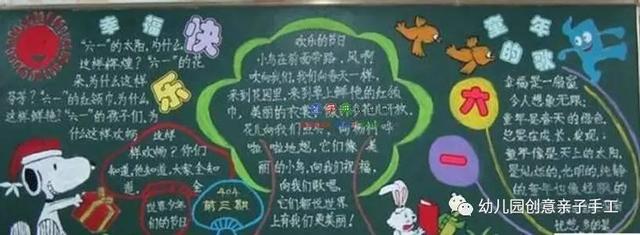 幸福快乐
"六一"的太阳,为什么
这样辉煌?"六一"的花
朵,为什么这样
芬芳?"六一"的红领巾,为什么,
这样鲜艳?"六一"的孩子们,为
什么这样欢畅 这样
样欢畅?你们
知道,他知道,大家全知
道,
全
世界少年
们的节日
404
第三期
欢乐的节日
小鸟在前面带路,风啊
吹向我们,我们向春天一样,
来到花园里,来到草上鲜艳的红领
巾,美丽的衣裳,像
花儿开放,
花儿向我们
啦地想,它们
丽的小鸟,向我们祝福,
向我们歌唱
它们都说世界
上有我们更美丽!
童年的歌
六一
幸福是一扇窗
令人想象无限;
童年是春天的绿色,
总是在成长、发现;
童年像是天上的太阳,
是灿烂的,光明的,纯静
的
幼儿园创意亲子手工